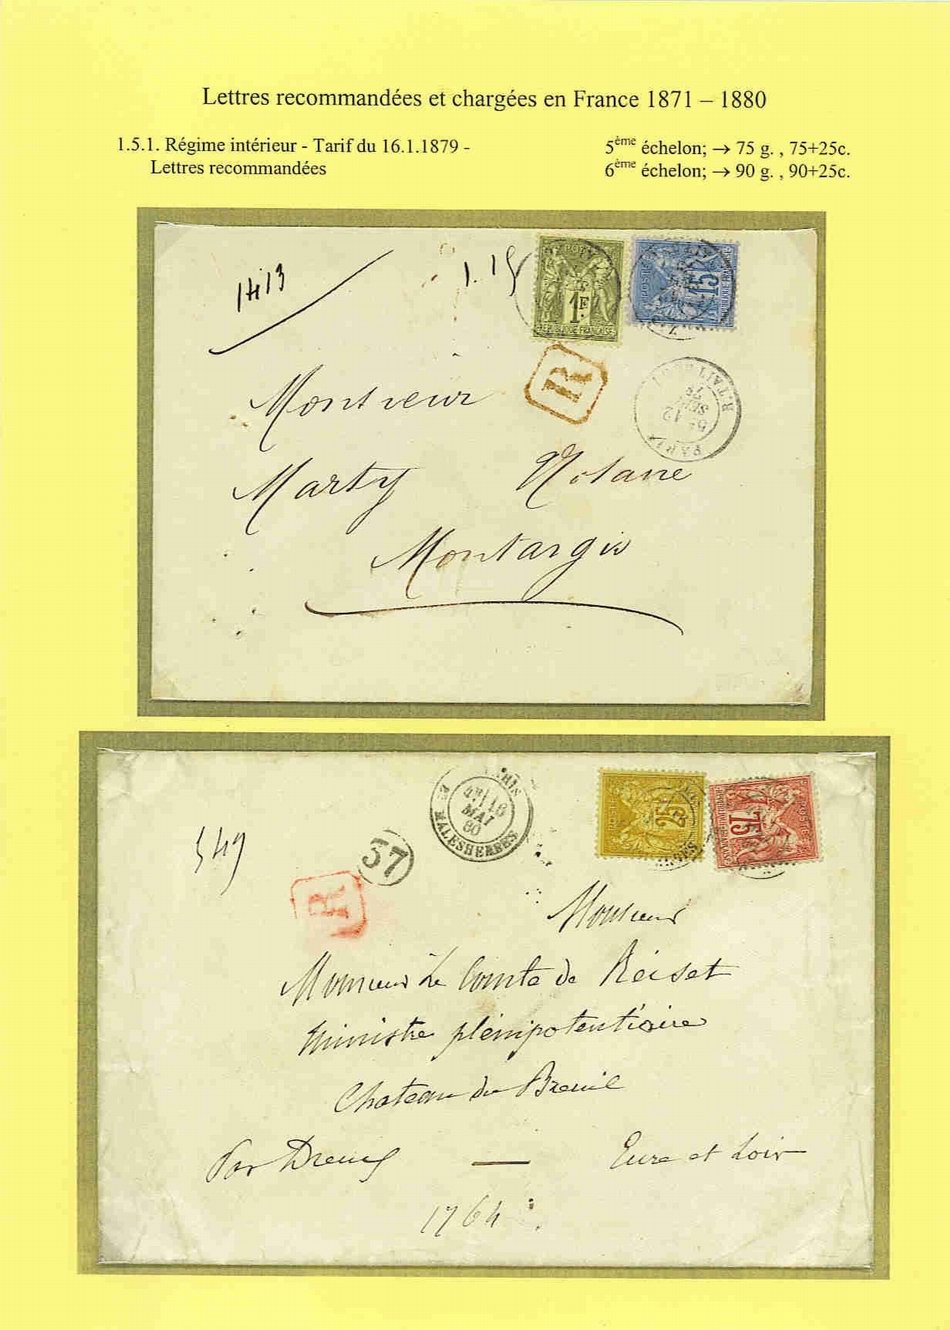 Lettres recommandées et chargées en France 1871 – 1880
1.5.1. Régime intérieur - Tarif du 16.1.1879 -
Lettres recommandées
5ème échelon; → 75 g. , 75+25c.
6ème échelon; → 90 g. , 90+25c.
1413
1.15
1F
REPUBLIQUE FRANÇAISE
15
R
PARIS
R. TAITBOUT
5E 12
SEPT
79
Monsieur
Marty Notaire
Montargis
Bd MALESHERBES
18
MAI
80
25
75
549
57
R
Monsieur
Monsieur Le Comte de Reiset
Ministre plénipotentiaire
Chateau du Breuil
Par Dreux — Eure et Loir
1764